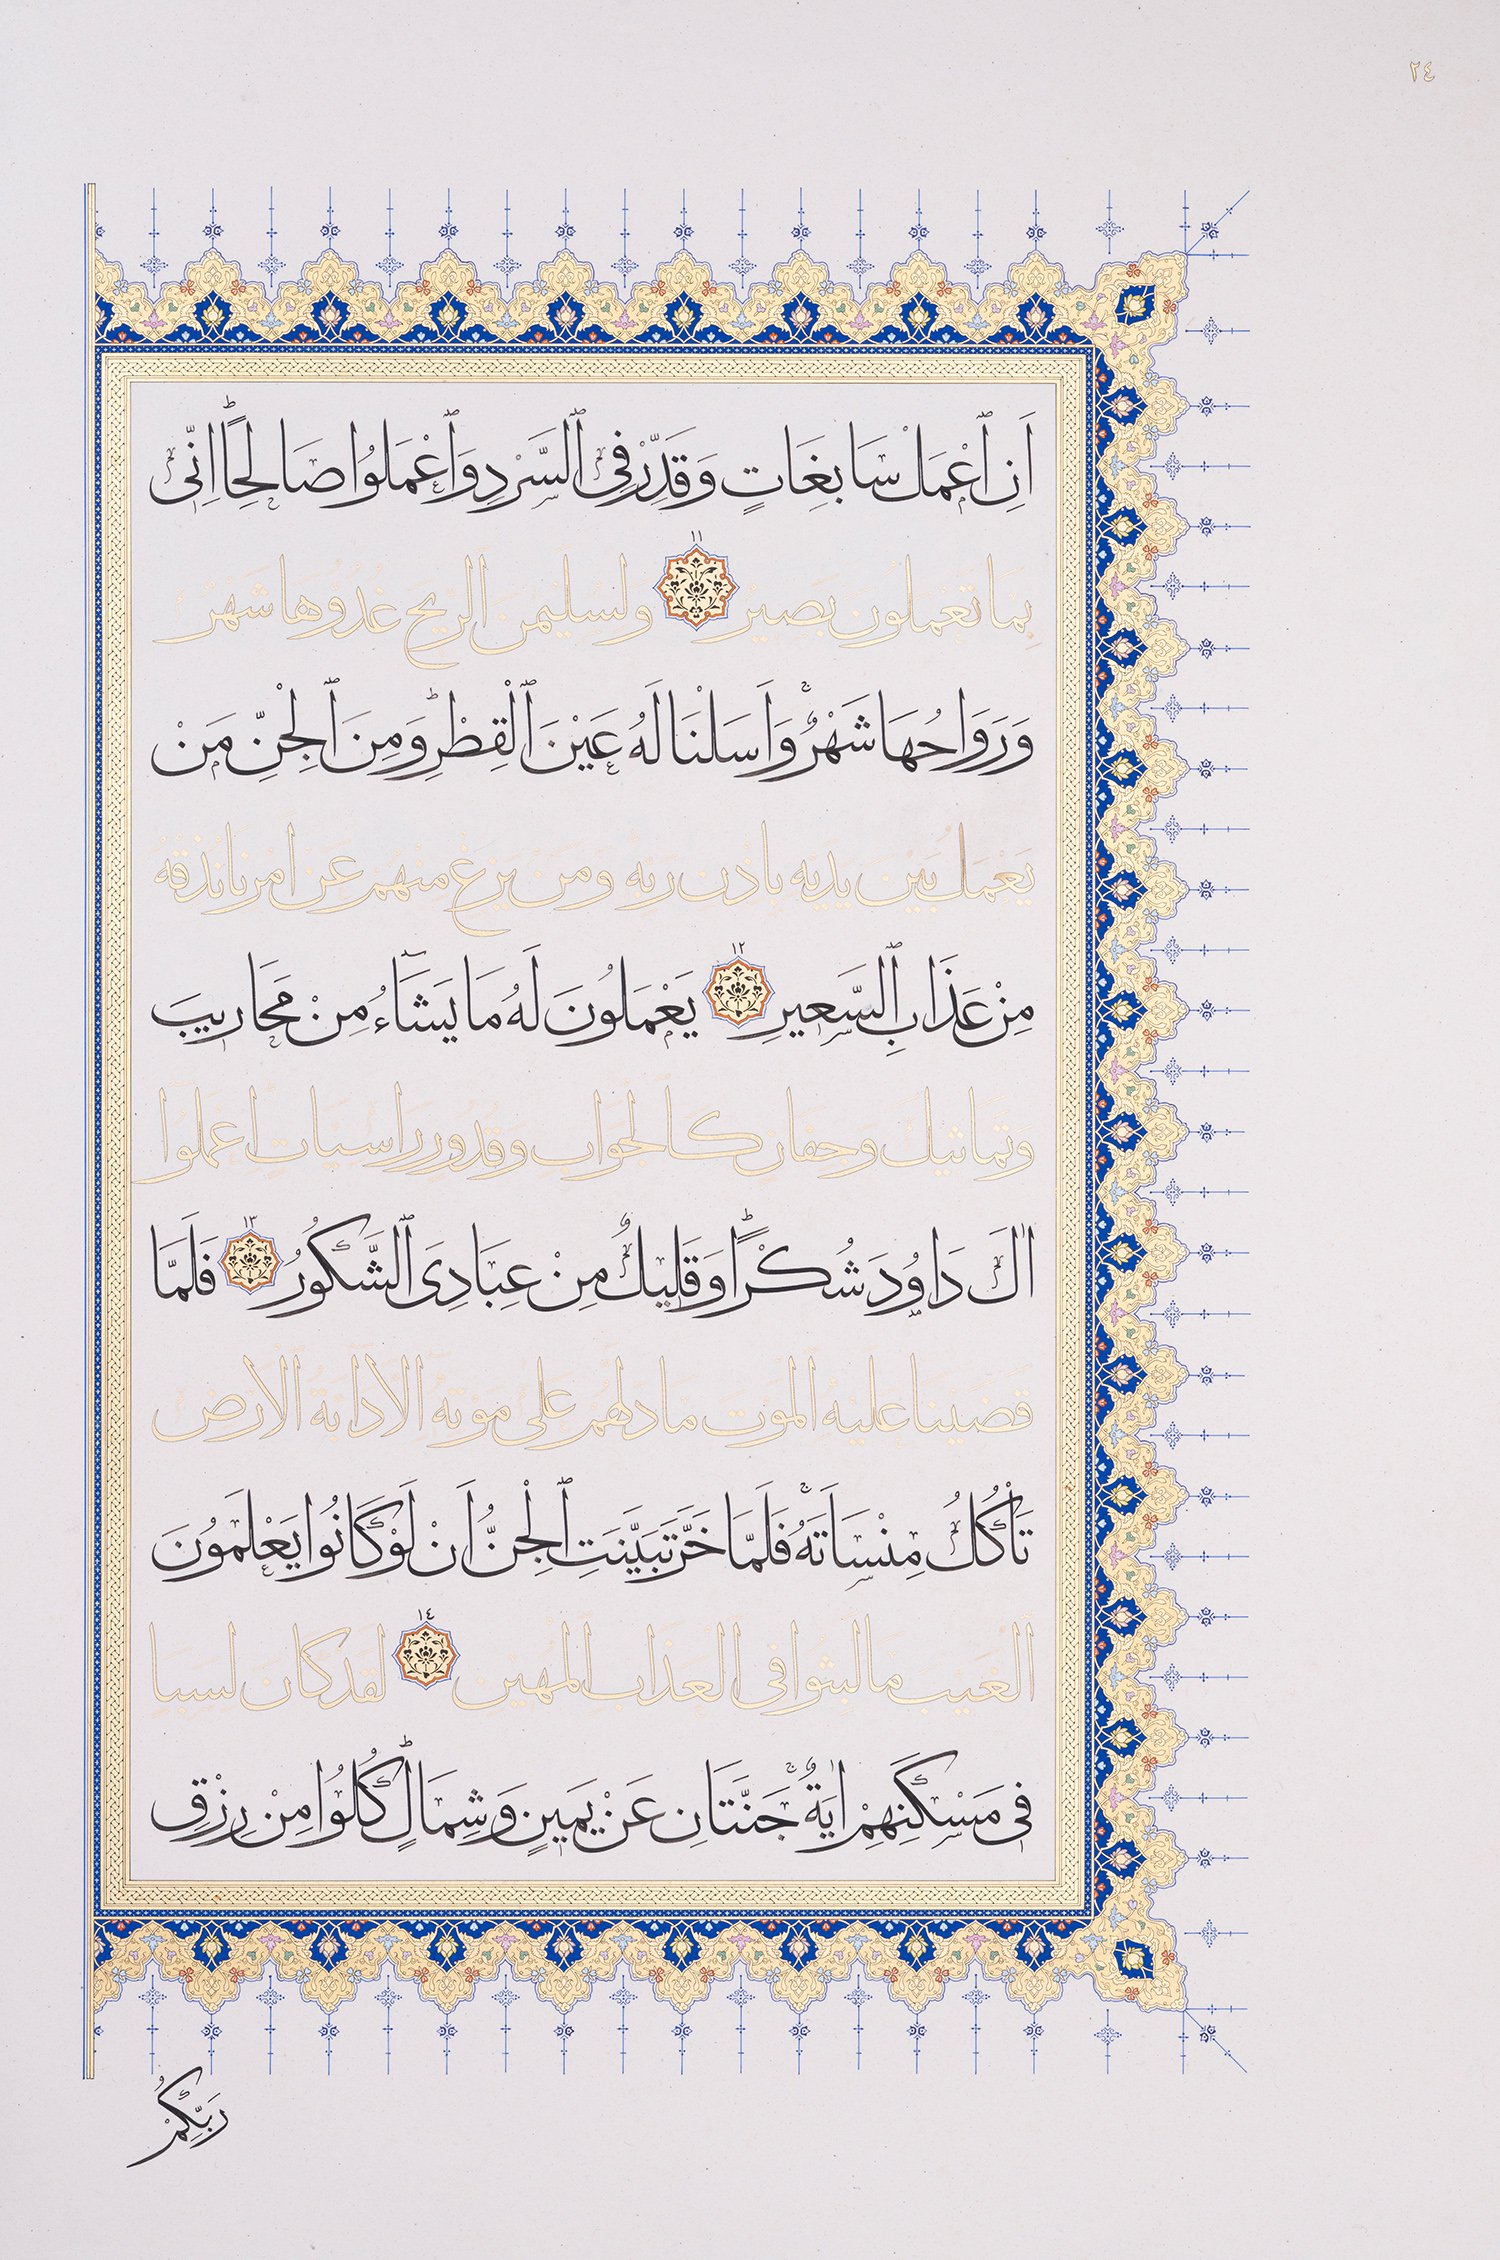 ٢٤
اَنِ ٱعْمَلْ سَابِغَاتٍ وَقَدِّرْ فِى ٱلسَّرْدِ وَٱعْمَلُوا صَالِحًا اِنِّى
بما تعملون بصير ١١ ولسليمن الريح غدوها شهر
وَرَوَاحُهَا شَهْرٌ وَاَسَلْنَا لَهُ عَيْنَ ٱلْقِطْرِ وَمِنَ ٱلْجِنِّ مَنْ
يعمل بين يديه باذن ربه ومن يزغ منهم عن امرنا نذقه
مِنْ عَذَابِ ٱلسَّعِيرِ ١٢ يَعْمَلُونَ لَهُ مَا يَشَآءُ مِنْ مَحَارِيبَ
وتماثيل وجفان كالجواب وقدور راسيات اعملوا
اٰلَ دَاوُدَ شُكْرًا وَقَلِيلٌ مِنْ عِبَادِىَ ٱلشَّكُورُ ١٣ فَلَمَّا
قضينا عليه الموت ما دلهم على موته الا دابة الارض
تَأْكُلُ مِنْسَاَتَهُ فَلَمَّا خَرَّ تَبَيَّنَتِ ٱلْجِنُّ اَنْ لَوْ كَانُوا يَعْلَمُونَ
الغيب ما لبثوا فى العذاب المهين ١٤ لقد كان لسبا
فِى مَسْكَنِهِمْ اٰيَةٌ جَنَّتَانِ عَنْ يَمِينٍ وَشِمَالٍ كُلُوا مِنْ رِزْقِ
رَبِّكُمْ